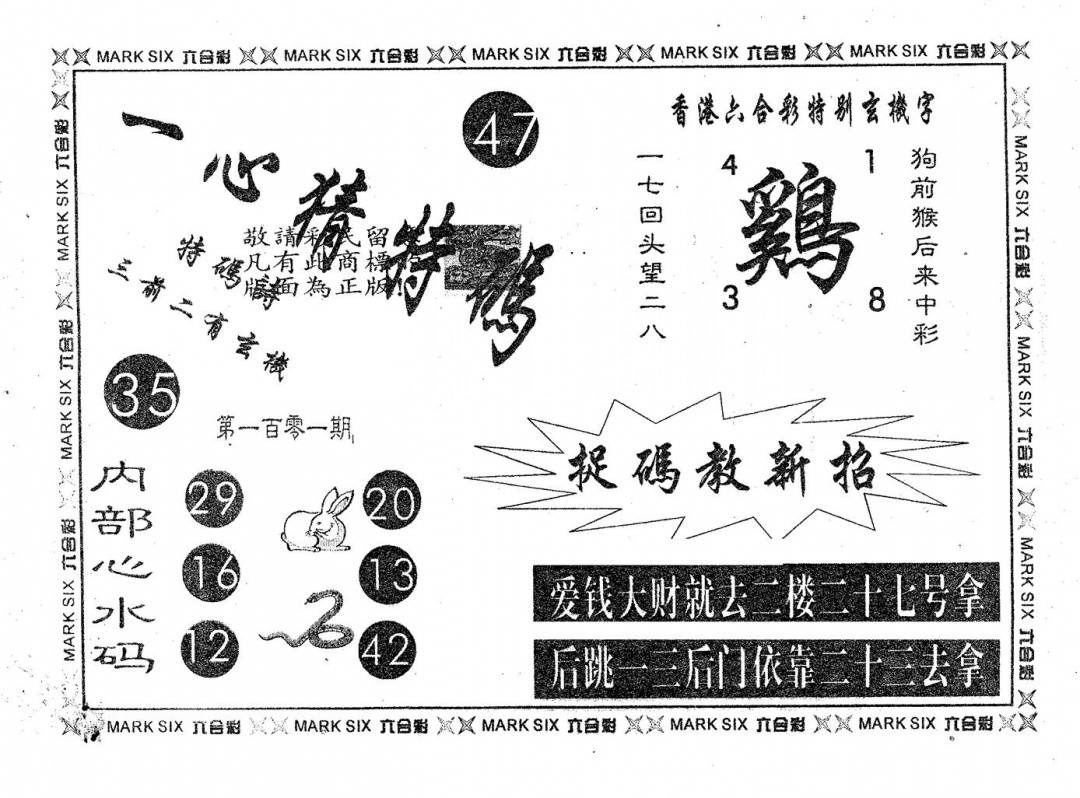 MARK SIX 六合彩 MARK SIX 六合彩 MARK SIX 六合彩 MARK SIX 六合彩 MARK SIX 六合彩
MARK SIX 六合彩 MARK SIX 六合彩 MARK SIX 六合彩
一心猜特碼
47
敬請彩民留
凡有此商標
版面為正版!
特碼詩
三前二有玄機
35
第一百零一期
内部心水码
29
20
16
13
12
42
香港六合彩特别玄機字
一七回头望二八
4
1
鷄
3
8
狗前猴后来中彩
捉碼教新招
爱钱大财就去二楼二十七号拿
后跳一三后门依靠二十三去拿
MARK SIX 六合彩 MARK SIX 六合彩 MARK SIX 六合彩
MARK SIX 六合彩 MARK SIX 六合彩 MARK SIX 六合彩 MARK SIX 六合彩 MARK SIX 六合彩